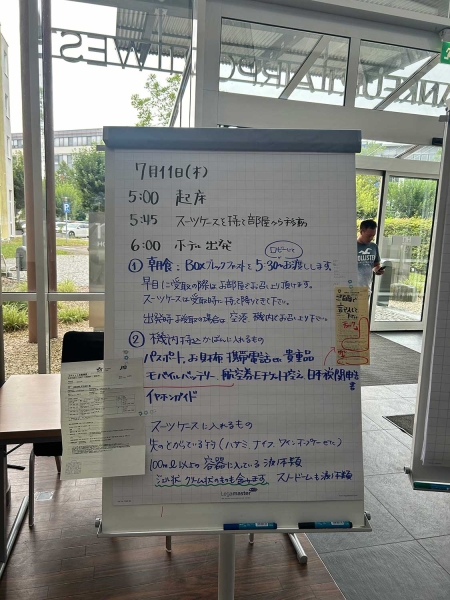 7月11日(木)
5:00 起床
5:45 スーツケースを持って部屋から移動
6:00 ホテル出発
ロビーにて
① 朝食:BOXブレックファストを5:30〜お渡しします。
早目に受取の際はお部屋でお召上り頂けます。
スーツケースは受取時に持って降りてきて下さい。
出発時お受取の場合は空港、機内でお召上り下さい。
② 機内持込かばんに入れるもの
パスポート、お財布、携帯電話など貴重品
モバイルバッテリー、航空券Eチケット控え、日本税関申告書
イヤホンガイド
スーツケースに入れるもの
先のとがっている物(ハサミ、ナイフ、ワインオープナーなど)
100mℓ以上の容器に入っている液体類
ジェル状 クリーム状のものも含みます スノードームも液体類
Legamaster